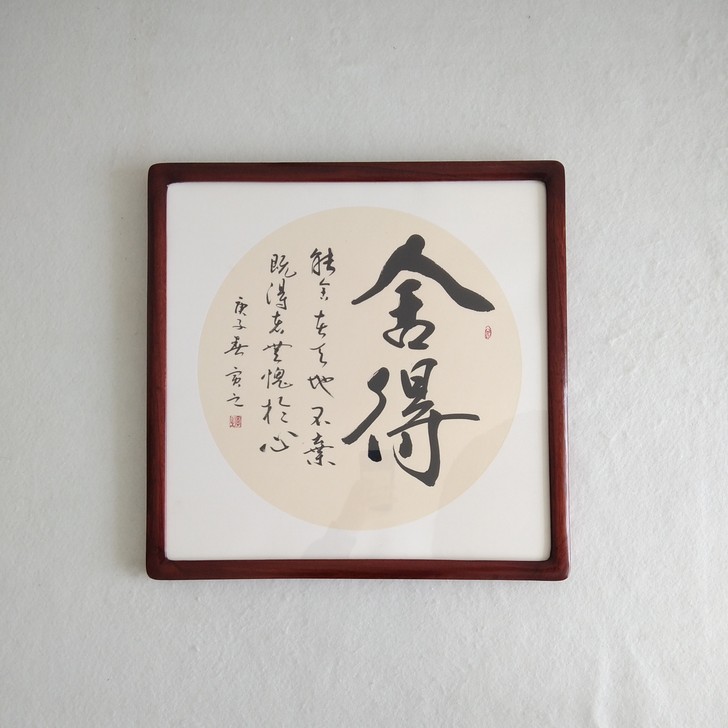 舍得
能舍者天地不棄
既得者無愧於心
庚子春寅之